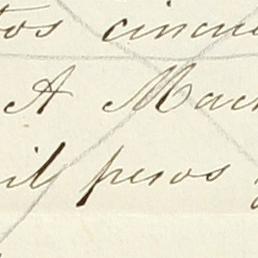 tos cincue
A Mach
il pesos y